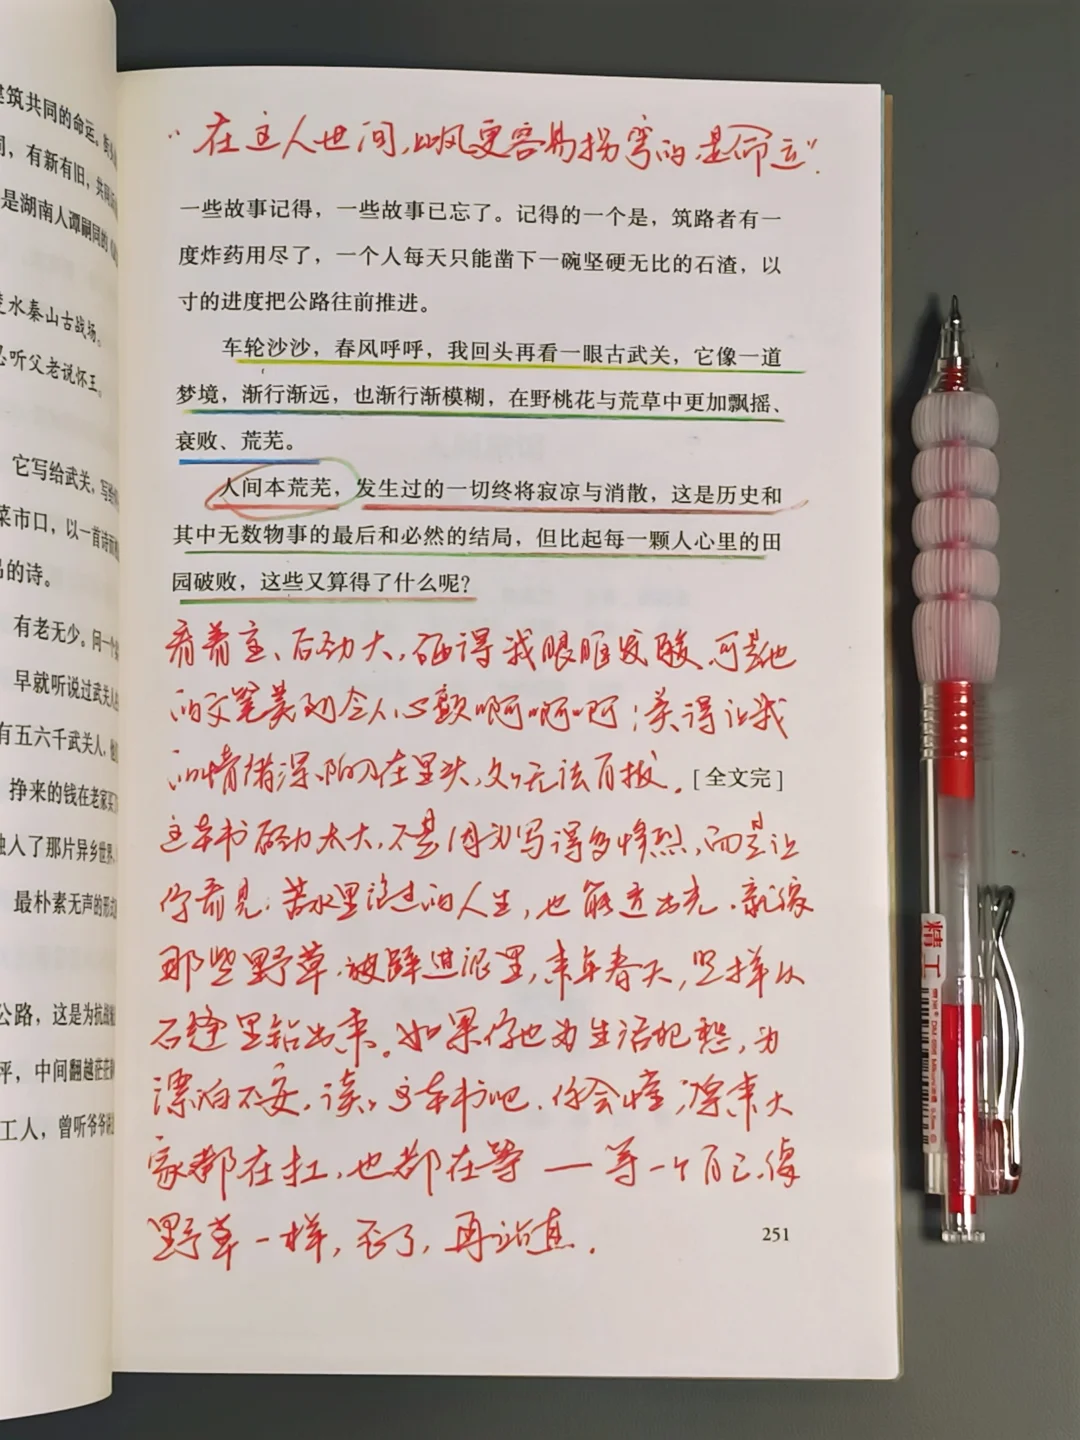 建筑共同的命运。
司，有新有旧，共
是湖南人谭嗣同的
楚水秦山古战场。
忍听父老说怀王。
它写给武关，
菜市口，以一首诗
的诗。
有老无少。问一个
早就听说过武关人
有五六千武关人，
挣来的钱在老家买
独入了那片异乡世界
最朴素无声的形式
公路，这是为抗战
坪，中间翻越茫茫
工人，曾听爷爷讲
“在这人世间，比风更容易拐弯的，是命运”
一些故事记得，一些故事已忘了。记得的一个是，筑路者有一
度炸药用尽了，一个人每天只能凿下一碗坚硬无比的石渣，以
寸的进度把公路往前推进。
车轮沙沙，春风呼呼，我回头再看一眼古武关，它像一道
梦境，渐行渐远，也渐行渐模糊，在野桃花与荒草中更加飘摇、
衰败、荒芜。
人间本荒芜，发生过的一切终将寂凉与消散，这是历史和
其中无数物事的最后和必然的结局，但比起每一颗人心里的田
园破败，这些又算得了什么呢？
看着这、后劲大，硌得我眼眶发酸，可是他
的文笔美到令人心颤啊啊啊；美得让我
的情绪深陷在里头，久久无法自拔。
[全文完]
这本书后劲太大，不是因为写得多惨烈，而是让
你看见：苦水里泡过的人生，也能透出光，就像
那些野草，被踩进泥里，来年春天，照样从
石缝里钻出来。如果你也为生活犯愁，为
漂泊不安，读读这本书吧，你会懂，原来大
家都在扛，也都在等 — 等一个自己，像
野草一样，歪了，再站直。
251
精工